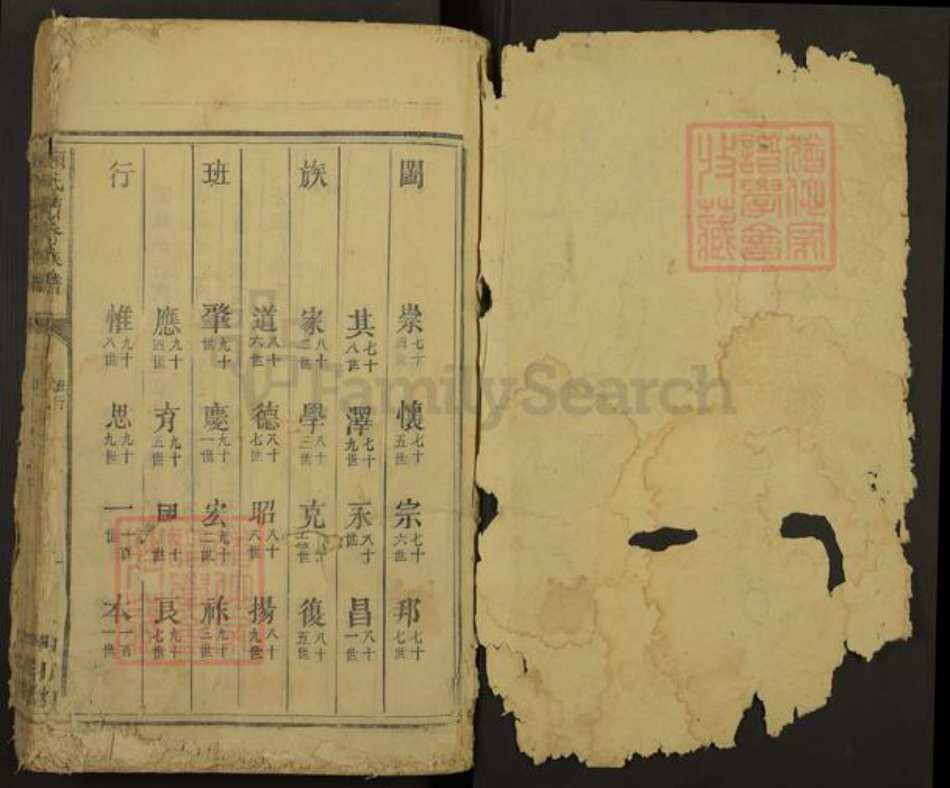 闔族班行
崇七十四世 懷七十五世 宗七十六世 邦七十七世
其七十八世 澤七十九世 永八十世 昌八十一世
家八十二世 學八十三世 克八十四世 復八十五世
道八十六世 德八十七世 昭八十八世 揚八十九世
肇九十世 慶九十一世 宏九十二世 祚九十三世
應九十四世 育九十五世 良九十七世
惟九十八世 思九十九世 一一百世 本一百一世
班行
猶他家譜學會收藏
FamilySearch